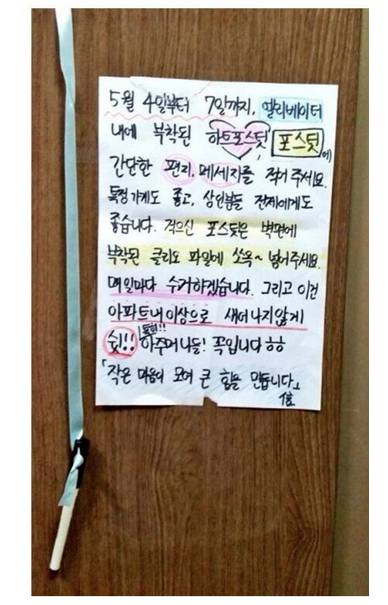 5월 4일부터 7일까지, 엘리베이터
내에 부착된 하트포스팃, 포스팃에
간단한 편지, 메세지를 적어 주세요.
특정가게도 좋고, 상인분들 전체에게도
좋습니다. 적으신 포스팃은 벽면에
부착된 클리도 파일에 쏘옥~ 넣어주세요.
매일마다 수거하겠습니다. 그리고 이건
아파트내 이상으로 새어 나지 않게
쉿!! 특히!! 아주머니들! 꼭입니다 ㅎㅎ
「작은 마음이 모여 큰 힘을 만듭니다」